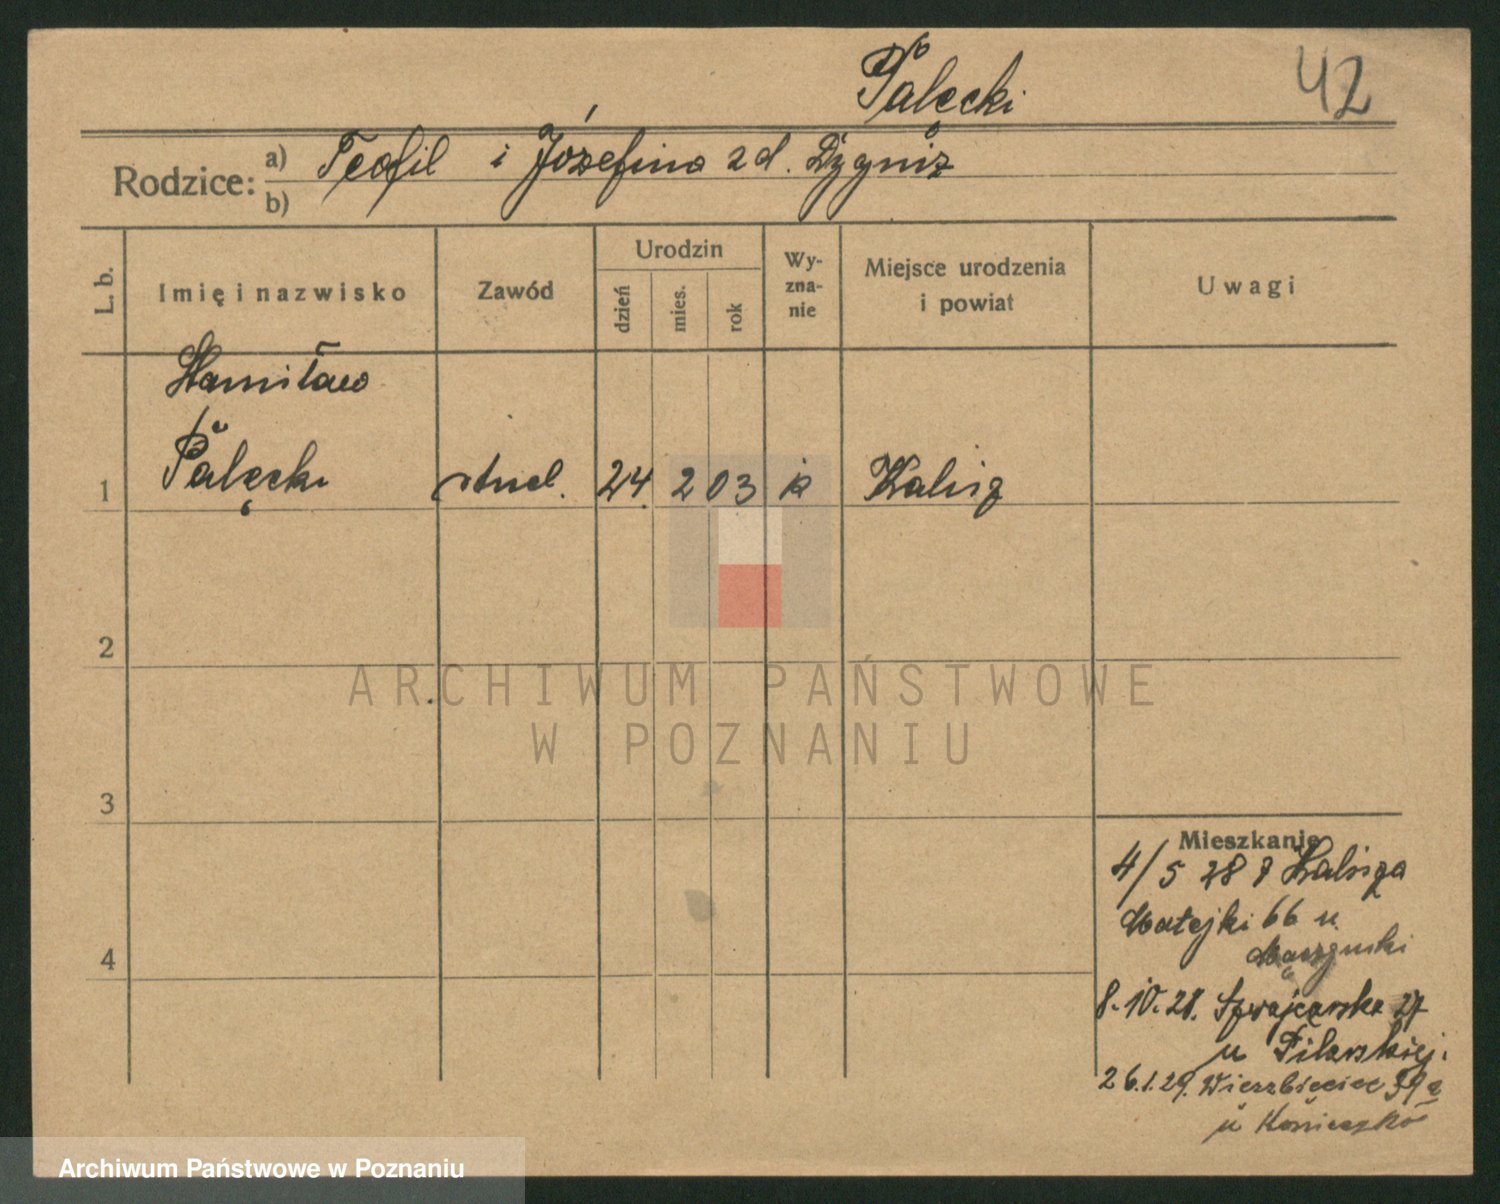 Pałęcki
42
Rodzice: a) Teofil i Józefina z d. Dygnis
b)
L. b.
Imię i nazwisko
Zawód
Urodzin
dzień
mies.
rok
Wy-
zna-
nie
Miejsce urodzenia
i powiat
Uwagi
Stanisław
1 Pałęcki stud. 24 2 03 k Kalisz
2
3
4
Mieszkanie
4/5 28 z Kalisza
Matejki 66 u
8.10.28. Szwajcarska 27
u Filarskiej.
26.1.29. Wierzbięcice 39a
u
ARCHIWUM PAŃSTWOWE
W POZNANIU
Archiwum Państwowe w Poznaniu